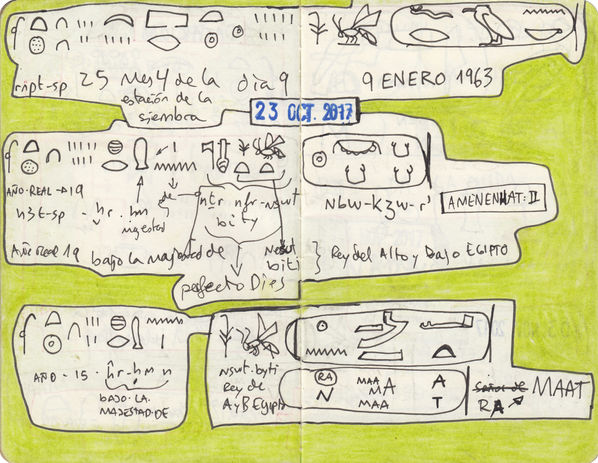 ript-sp 25 Mes 4 de la día 9
estación de la
siembra
9 ENERO 1963
23 OCT. 2017
AÑO-REAL-D19
h3t-sp - hr.hm
majestad
de
ntr nfr-nswt
bity
Nbw-k3w-r'
AMENENHAT: II
AÑO Real 19 bajo la majestad de
biti
} Rey del Alto y Bajo EGIPTO
perfecto Dios
AÑO - 15 - hr-hm n
BAJO. LA.
MAJESTAD. DE
Nswt-byti
Rey de
A y B Egipto
RA
N
MAA
MA
MAA
A
T
RA
MAAT